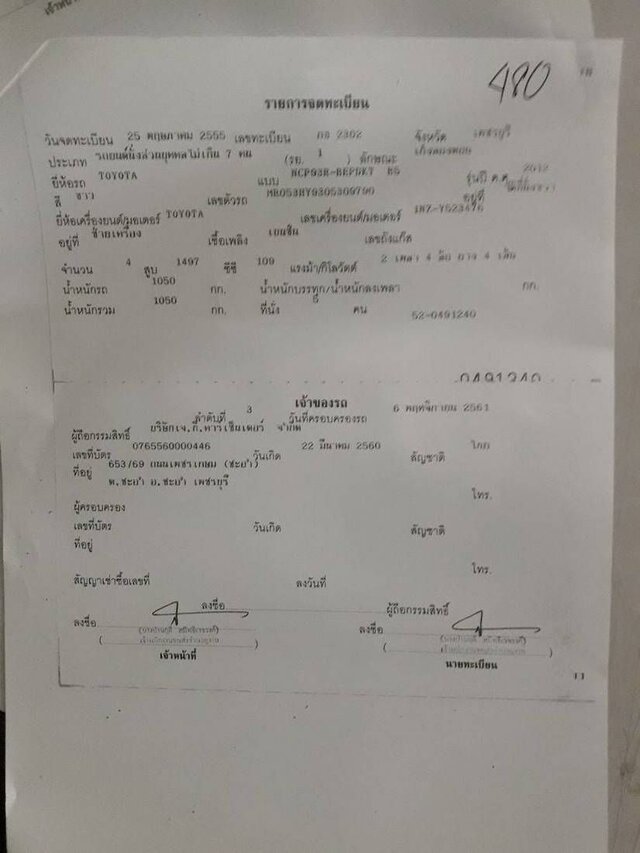 เจ้าหน้า
480
รายการจดทะเบียน
วันจดทะเบียน 25 พฤษภาคม 2555 เลขทะเบียน กธ 2302 จังหวัด เพชรบุรี
ประเภท รถยนต์นั่งส่วนบุคคลไม่เกิน 7 คน (รย. 1 ) ลักษณะ เก๋งสองตอน
ยี่ห้อรถ TOYOTA แบบ NCP93R-BEPDKT รุ่นปี ค.ศ. 2012
สี ขาว เลขตัวรถ MR053HY9305309790 อยู่ที่
ยี่ห้อเครื่องยนต์/มอเตอร์ TOYOTA เลขเครื่องยนต์/มอเตอร์ 1NZ-Y523476 อยู่ที่
ซ้ายเครื่อง เชื้อเพลิง เบนซิน เลขถังแก๊ส
จำนวน 4 สูบ 1497 ซีซี 109 แรงม้า/กิโลวัตต์ 2 เพลา 4 ล้อ ยาง 4 เส้น
น้ำหนักรถ 1050 กก. น้ำหนักบรรทุก/น้ำหนักลงเพลา กก.
น้ำหนักรวม 1050 กก. ที่นั่ง 5 คน 52-0491240
0491240
เจ้าของรถ
ลำดับที่ 3 วันที่ครอบครองรถ 6 พฤศจิกายน 2561
ผู้ถือกรรมสิทธิ์ จำกัด
เลขที่บัตร 0765560000446 วันเกิด 22 มีนาคม 2560 สัญชาติ ไทย
ที่อยู่ 653/69 ถนนเพชรเกษม (ชะอำ)
ต.ชะอำ อ.ชะอำ เพชรบุรี โทร.
ผู้ครอบครอง
เลขที่บัตร วันเกิด สัญชาติ
ที่อยู่
โทร.
สัญญาเช่าซื้อเลขที่ ลงวันที่
ลงชื่อ ผู้ถือกรรมสิทธิ์
ลงชื่อ ลงชื่อ
เจ้าหน้าที่ นายทะเบียน
11